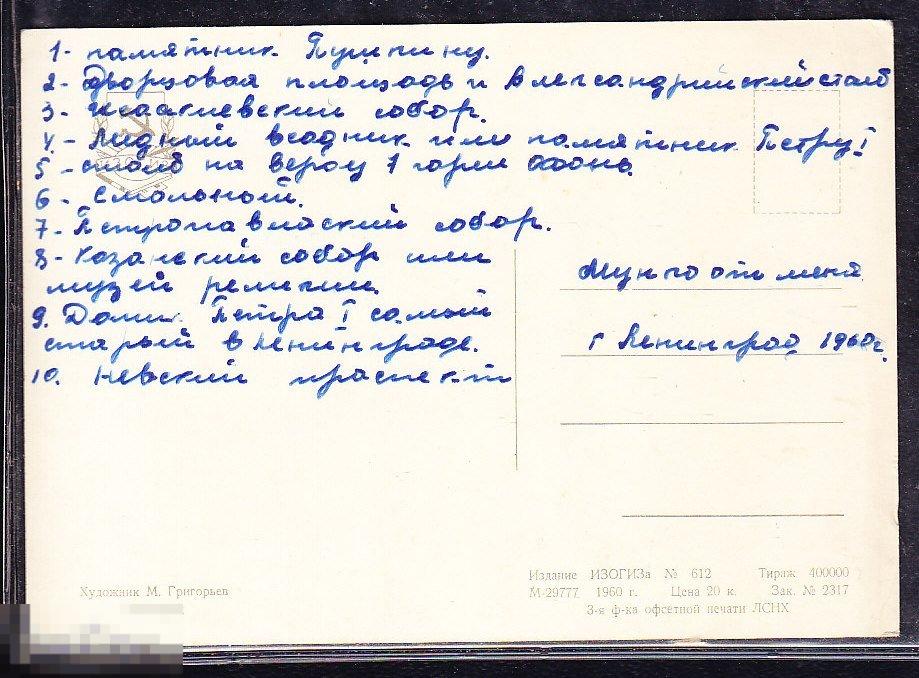 1- памятник Пушкину.
2- Дворцовая площадь и Александрийский столб
3- Исаакиевский собор.
4.- Медный всадник или памятник Петру I
5 -столб на верху 1 горит огонь.
6- Смольный.
7- Петропавлский собор.
8- Казанский собор или
музей религии.
9. Домик Петра I самый
старый в Ленинграде.
10. Невский праспект
от меня
г Ленинград 1960г.
Художник М. Григорьев
Издание ИЗОГИЗа № 612 Тираж 400000
М-29777 1960 г. Цена 20 к. Зак. № 2317
3-я ф-ка офсетной печати ЛСНХ